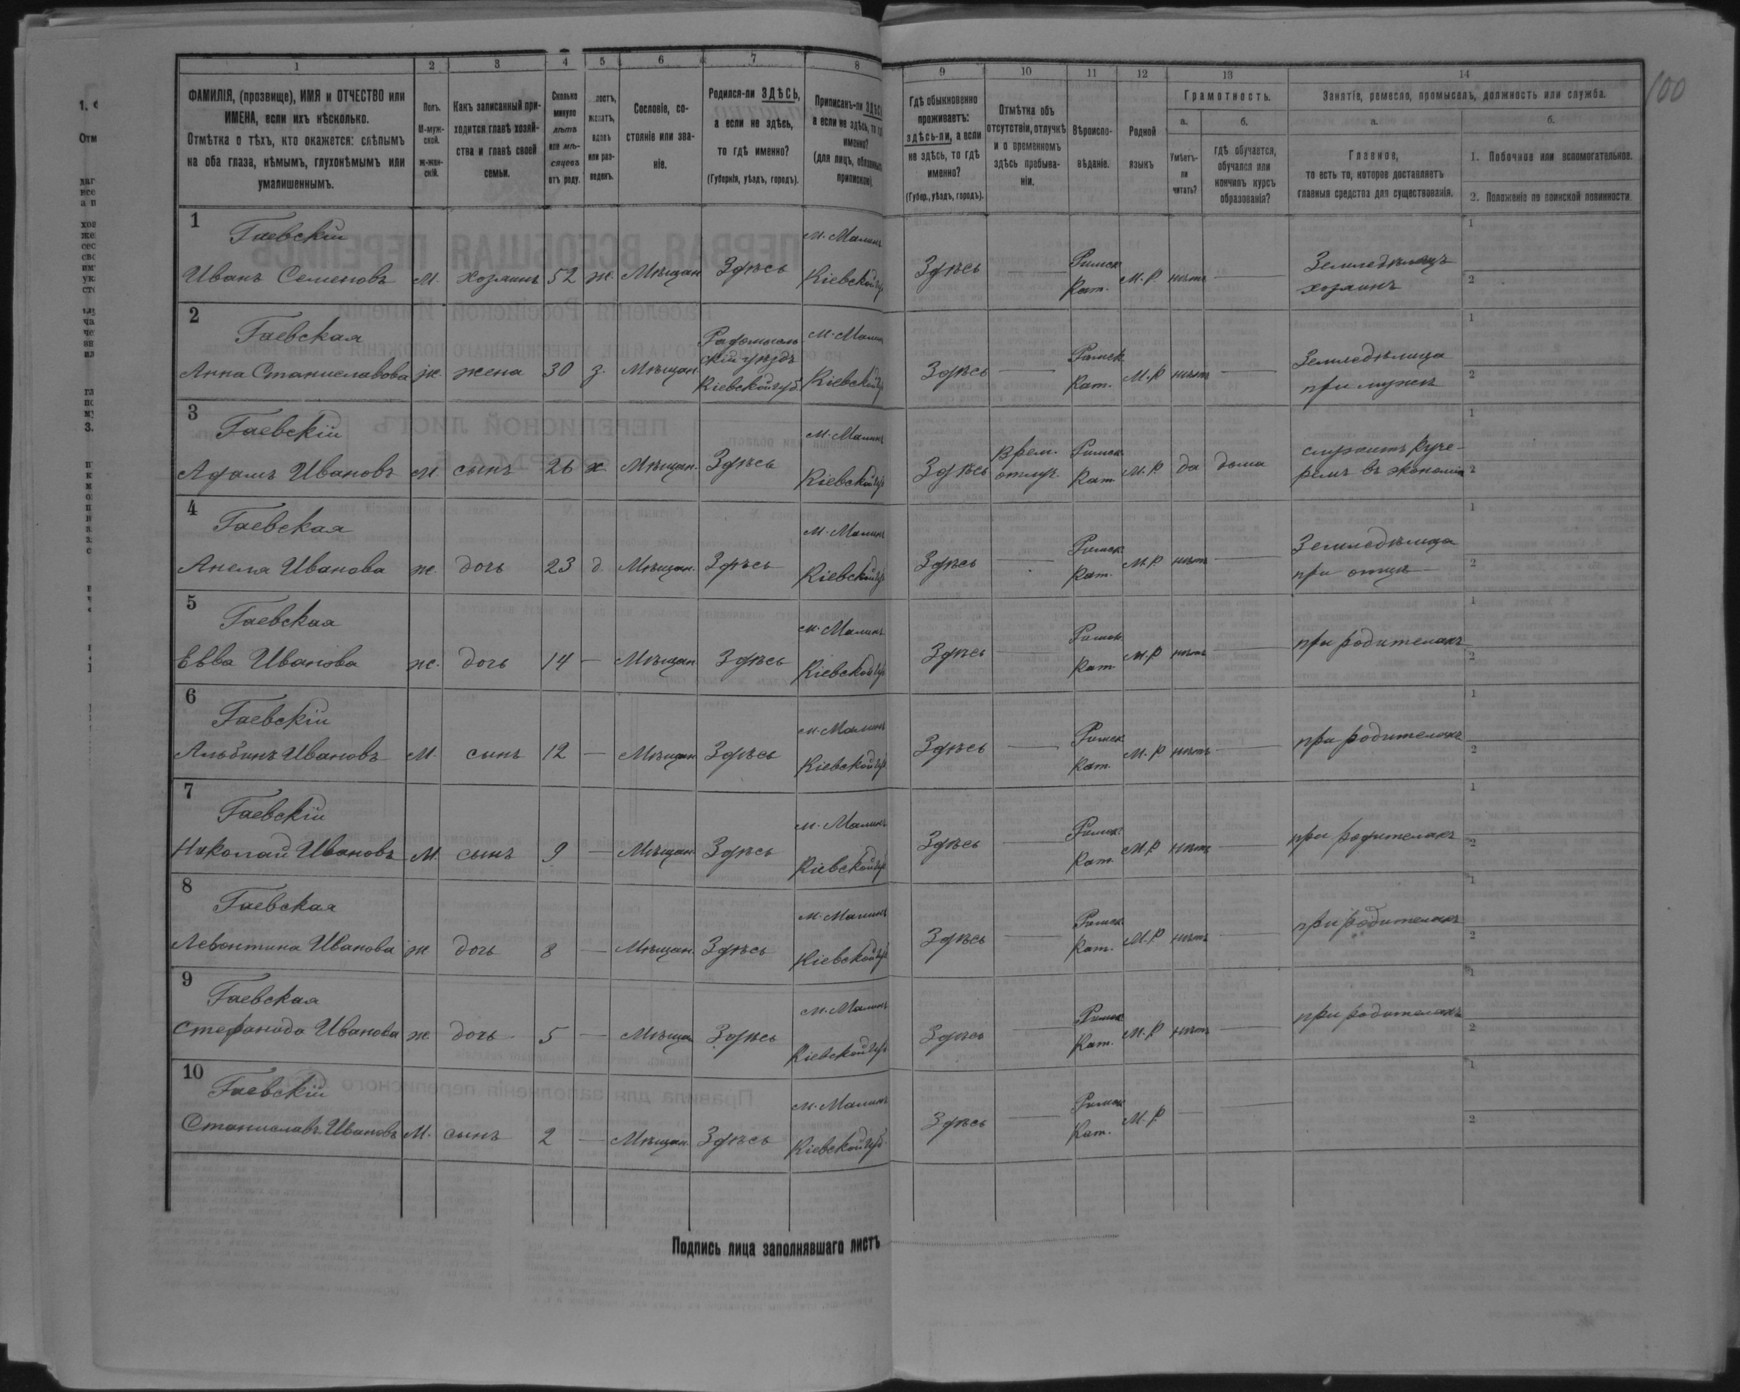 100
1 2 3 4 5 6 7 8 9 10 11 12 13 14
ФАМИЛІЯ, (прозвище), ИМЯ и ОТЧЕСТВО или
ИМЕНА, если ихъ нѣсколько.
Отмѣтка о тѣхъ, кто окажется: слѣпымъ
на оба глаза, нѣмымъ, глухонѣмымъ или
умалишеннымъ.
Полъ.
М-муж-
ской.
ж-жен-
скій.
Какъ записанный при-
ходится главѣ хозяй-
ства и главѣ своей
семьи.
Сколько
минуло
лѣтъ
или мѣ-
сяцевъ
отъ роду.
лостъ,
женатъ,
вдовъ
или раз-
веденъ.
Сословіе, со-
стояніе или зва-
ніе.
Родился-ли ЗДѢСЬ,
а если не здѣсь,
то гдѣ именно?
(Губернія, уѣздъ, городъ).
Приписанъ-ли ЗДѢСЬ
а если не здѣсь, то гдѣ
именно?
(для лицъ, обязанныхъ
припискою).
Гдѣ обыкновенно
проживаетъ:
здѣсь-ли, а если
не здѣсь, то гдѣ
именно?
(Губер., уѣздъ, городъ).
Отмѣтка объ
отсутствіи, отлучкѣ
и о временномъ
здѣсь пребыва-
ніи.
Вѣроиспо-
вѣданіе.
Родной
языкъ
Грамотность.
а. б.
Умѣетъ-
ли
читать?
гдѣ обучается,
обучался или
кончилъ курсъ
образованія?
Занятіе, ремесло, промыселъ, должность или служба.
а. б.
Главное,
то есть то, которое доставляетъ
главныя средства для существованія.
1. Побочное или вспомогательное.
2. Положеніе по воинской повинности.
1
Гаевскій м. Малинъ Римск. Земледѣлецъ 1
Иванъ Семеновъ м. хозяинъ 52 ж. Мѣщан. Здѣсь Кіевской губ Здѣсь — Кат. М.Р нѣтъ — хозяинъ 2
2
Гаевская Радомысль м. Малинъ Римск Земледѣлица 1
скій уѣздъ
Анна Станиславова ж. жена 30 з. Мѣщан. Кіевской губ Кіевской губ Здѣсь — Кат. М.Р нѣтъ — при мужѣ 2
3
Гаевскій м. Малинъ Врем. Римск служитъ куче- 1
Адамъ Ивановъ м. сынъ 26 х. Мѣщан. Здѣсь Кіевской губ Здѣсь отлуч. Кат М.Р да дома ромъ въ экономіи 2
4
Гаевская м. Малинъ Римск Земледѣлица 1
Анеля Иванова ж. дочь 23 д. Мѣщан. Здѣсь Кіевской губ Здѣсь — Кат. М.Р нѣтъ — при отцѣ 2
5
Гаевская м. Малинъ Римск 1
Евва Иванова ж. дочь 14 — Мѣщан Здѣсь Кіевской губ Здѣсь — Кат М.Р нѣтъ — при родителяхъ 2
6
Гаевскій м. Малинъ Римск 1
Альбинъ Ивановъ М. сынъ 12 — Мѣщан Здѣсь Кіевской губ Здѣсь — Кат. М.Р нѣтъ — при родителяхъ 2
7
Гаевскій м. Малинъ Римск 1
Николай Ивановъ М. сынъ 9 — Мѣщан Здѣсь Кіевской губ Здѣсь — Кат. М.Р нѣтъ — при родителяхъ 2
8
Гаевская м. Малинъ Римск 1
Левонтина Иванова ж дочь 8 — Мѣщан. Здѣсь Кіевской губ Здѣсь — Кат. М.Р нѣтъ — при родителяхъ 2
9
Гаевская м. Малинъ Римск 1
Стефанида Иванова ж. дочь 5 — Мѣщан Здѣсь Кіевской губ Здѣсь — Кат. М.Р нѣтъ — при родителяхъ 2
10
Гаевскій м. Малинъ Римск 1
Станиславъ Ивановъ М. сынъ 2 — Мѣщан. Здѣсь Кіевской губ Здѣсь — Кат. М.Р — — 2
Подпись лица заполнявшаго листъ